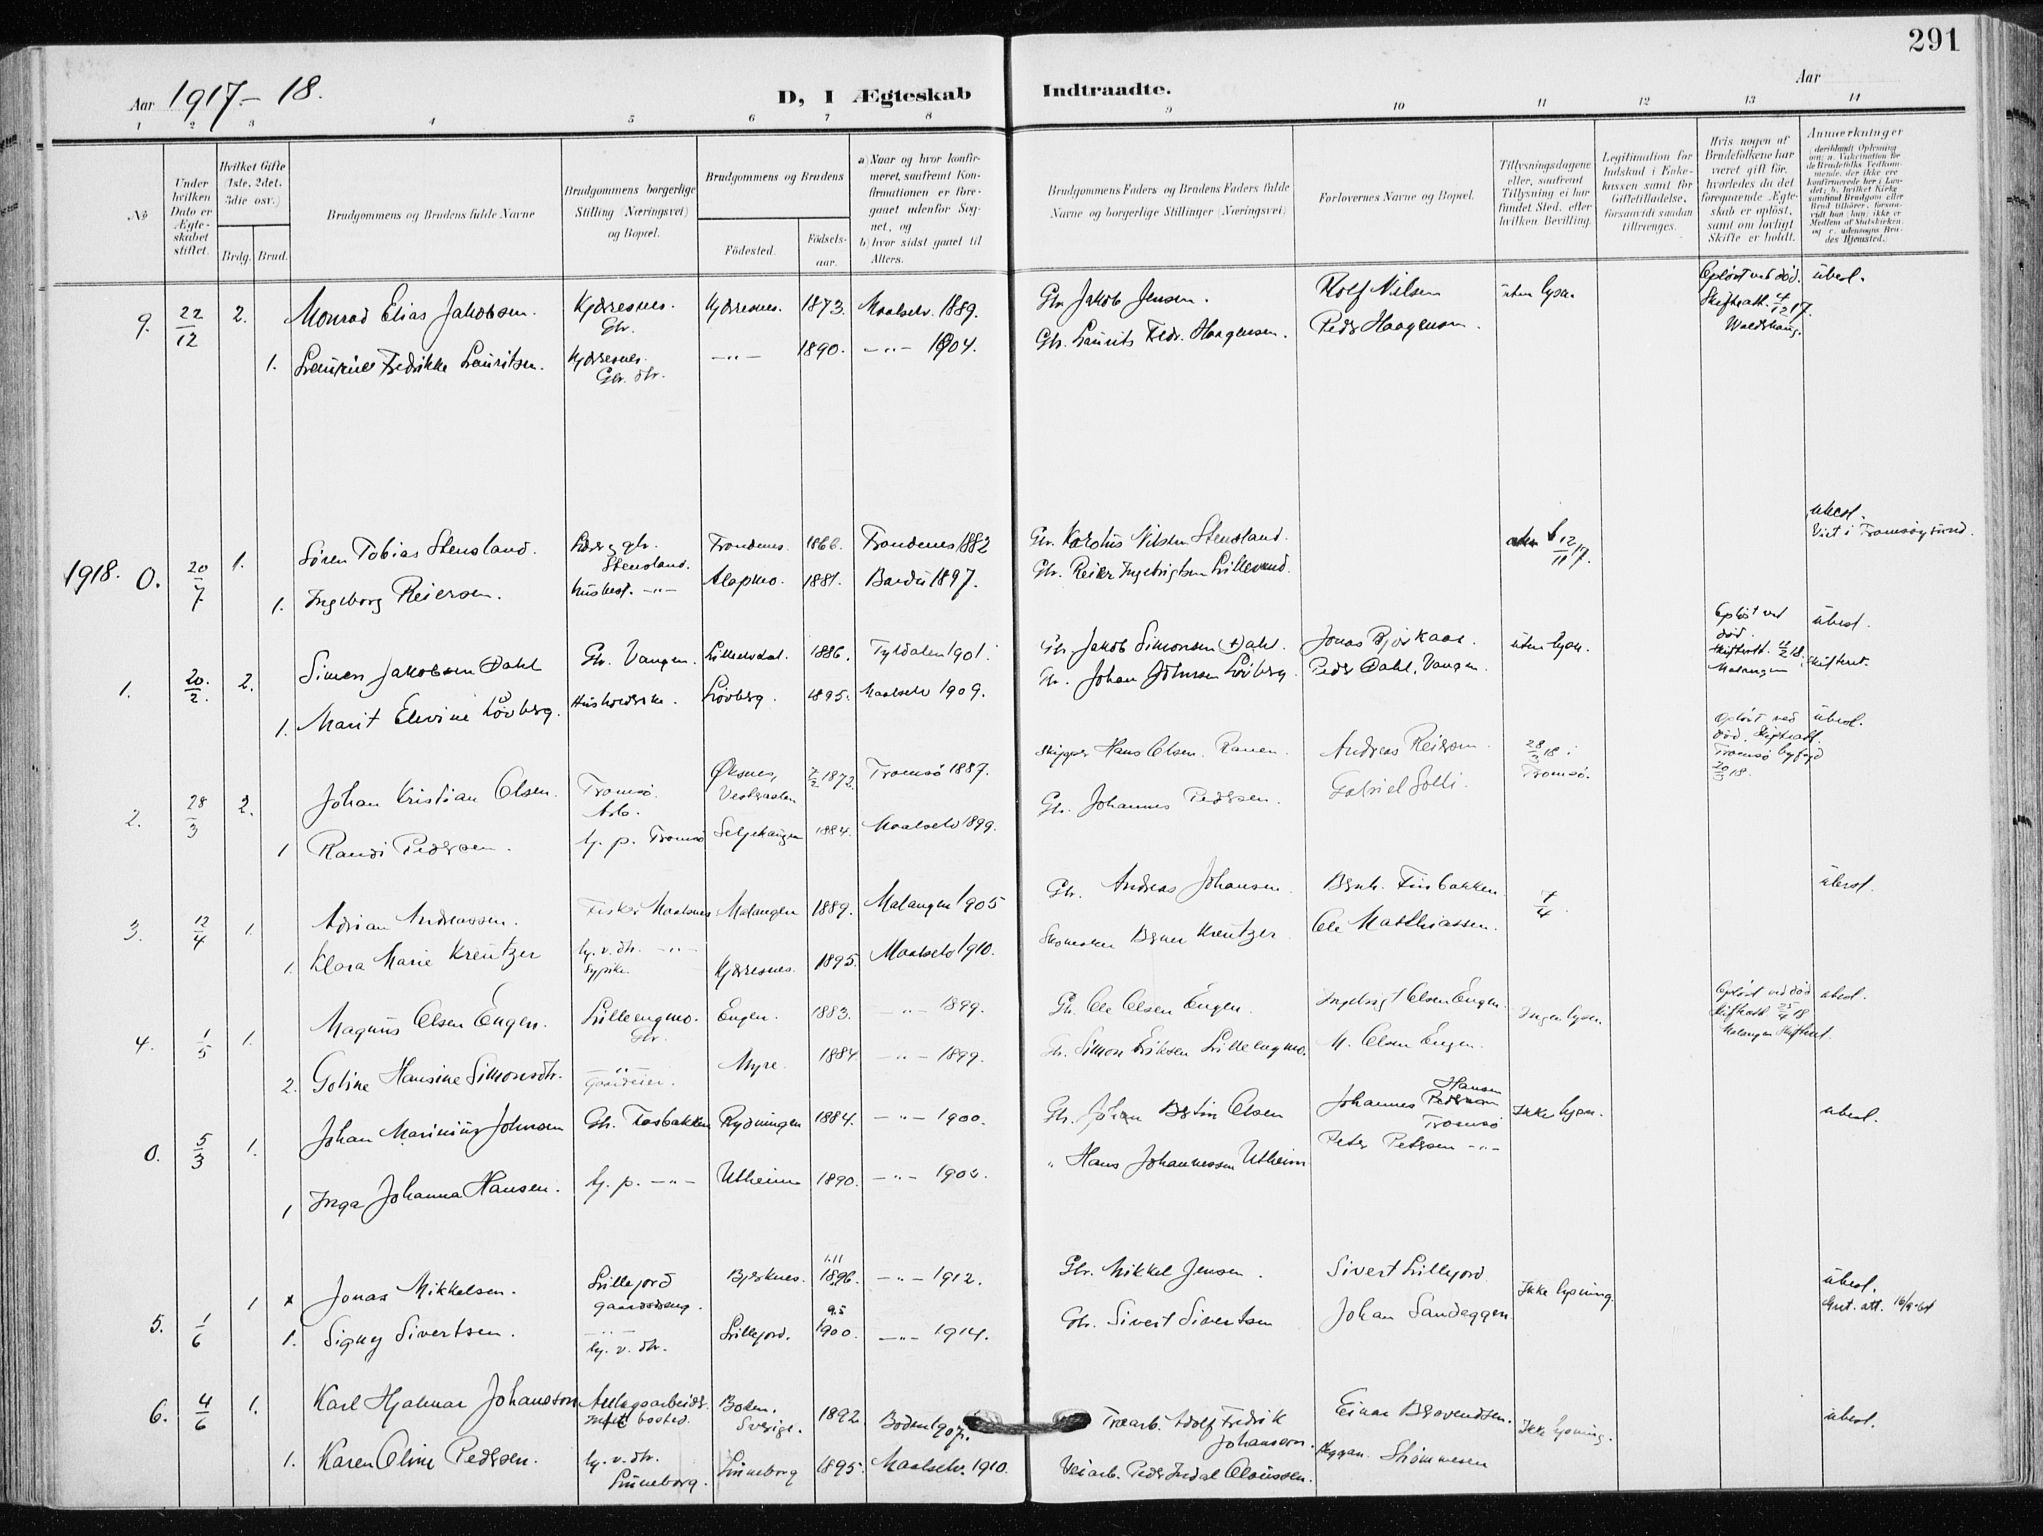 291
Aar 1917-18.
D, I Ægteskab Indtraadte.
Aar
1 2 3 4 5 6 7 8 9 10 11 12 13 14
No
Under hvilken Dato er Ægteskabet stiftet.
Hvilket Gifte (1ste, 2det, 3die osv.)
Brdg. Brud.
Brudgommens og Brudens fulde Navne
Brudgommens borgerlige Stilling (Næringsvei) og Bopæl.
Brudgommens og Brudens
Födested.
Födselsaar.
a) Naar og hvor konfirmeret, saafremt Konfirmationen er foregaaet udenfor Sognet, og
b) hvor sidst gaaet til Alters.
Brudgommens Faders og Brudens Faders fulde Navne og borgerlige Stillinger (Næringsvei)
Forlovernes Navne og Bopæl.
Tillysningsdagene eller, saafremt Tillysning ei har fundet Sted, efter hvilken Bevilling.
Legitimation for Indskud i Enkekassen samt for Giftetilladelse, forsaavidt saadan tiltrænges.
Hvis nogen af Brudefolkene har været gift før, hvorledes da det foregaaende Ægteskab er oplöst, samt om lovligt Skifte er holdt.
Anmærkninger
9. 22/12 2. Monrad Elias Jakobsen. Kjærresnes. Gbr. Kjærresnes. 1873. Maalselv. 1889. Gbr. Jakob Jensen. Rolf Nilsen uten lysn. Oplöst ved död. Skifteatt. 4/12 17. ubesl.
1. Fredrikke Lauritsen. Kjærresnes. Gbr. dtr. -"- 1890. -"- 1904. Gbr. Laurits Fedr. Haagensen. Peder Haagensen.
1918. 0. 20/7 1. Sören Tobias Stensland. gbr. Stensland. Trondenes. 1866. Trondenes 1882 Gbr. Karolius Nilsen Stensland. 12/11 17. ubesl. Viet i Tromsøysund.
1. Ingeborg Reiersen. husbest. -"- Alapmo. 1881. Bardu 1897. Gbr. Reier Ingebrigtsen
1. 20/2. 2. Simen Jakobsen Dahl Gbr. Vangen. Lilleelvdal. 1886. Tyldalen 1901. Gbr. Jakob Simonsen Dahl. Jonas Bjørkaas. uten lysn. Oplöst ved död. Skifteatt. 18. Malangen skifteret. ubesl.
1. Marit Elevine Lövberg. Husholderske. Lövberg. 1895. Maalselv 1909. Gbr. Johan Johnsen Lövberg. Peder Dahl. Vangen.
2. 28/3 2. Johan Kristian Olsen. Tromsö. Arb. Öksnes, Vesteraalen 7/2 1872. Tromsö 1887. Skipper Hans Olsen. Andreas Reiersen. 28/3 18. Tromsö. Oplöst ved död. Skifteatt. Tromsö byfogd 20/3 18. ubesl.
1 Randi Pedersen. tj. p. Tromsö Seljehaugen 1884. Maalselv 1899. Gbr. Johannes Pedersen. Gabriel Solli.
3. 12/4 1. Adrian Andreassen. Fisker Maalsnes Malangen 1889. Malangen 1905 Gbr. Andreas Johansen. Bernh. Finbakken 7/4. ubesl.
1. Klara Marie Kreutzer tj. v. dtr. -"- Sypike. Kjærresnes. 1895. Maalselv 1910. Skomaker Kreutzer. Ole Matthiassen.
4. 1/5 1. Magnus Olsen Engen. Lilleengmo. Gbr. Engen. 1883. -"- 1899. Gbr. Ole Olsen Engen. Ingebrigt Olsen Engen. Ingen lysn. Oplöst ved död Skifteatt. 25/4 18 Malangen Skifteret. ubesl.
2. Goline Hansine Simonsdtr. -"- Gaardeier. Myre. 1884. -"- 1899. Gbr. Simon Eriksen Lilleengmo. M. Olsen Engen.
0. 5/3 1. Johan Marinius Johnsen Gbr. Fosbakken Rydningen 1884. -"- 1900. Gbr. Johan Bertin Olsen Johannes Hansen Tromsö Ikke lysn. ubesl.
1 Inga Johanna Hansen. tj. p. -"- Utheim 1890. -"- " Hans Johannessen Utheim Peter Petersen -"-
5. 1/6 1 x Jonas Mikkelsen. Lillefjord gaardsdreng. Bjerknes. 1.11 1896. -"- 1912. Gbr. Mikkel Jensen. Sivert Lillefjord Ikke lysning. ubesl.
1. Signy Sivertsen. -"- tj. v. dtr. Lillefjord. 9.5 1900. -"- 1914. Gbr. Sivert Sivertsen Johan Sandeggen att. 16/9-64
6. 4/6 1. Karl Hjalmar Johansson Anlægsarbeider bosted. Boden. Sverige. 1892. Boden 1907. Adolf Fredrik Johansson. Einar Ikke lysning. ubesl.
1. Karen Oline Pedersen. tj. v. dtr. Luneborg. Luneborg 1895. Maalselv. 1910. Veiarb. Peder